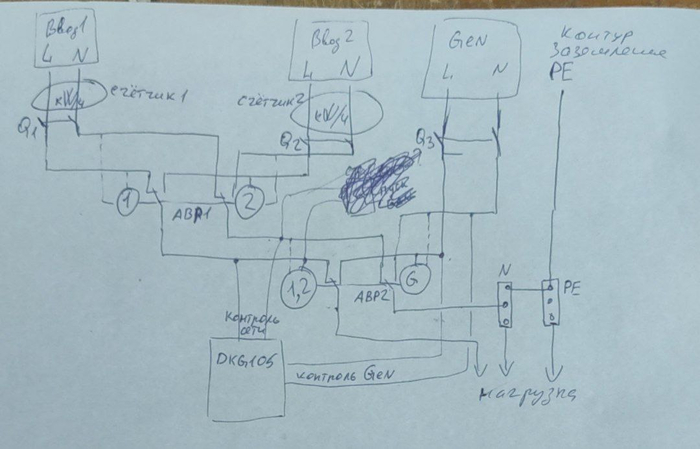 Ввод1
L N
кW/ч
счётчик1
Q1
Ввод2
L N
кW/ч
счётчик2
Q2
GeN
L N
Q3
контур
заземления
PE
1
АВР1
2
1,2
АВР2
G
контроль
сети
DKG105
контроль GeN
N
PE
нагрузка